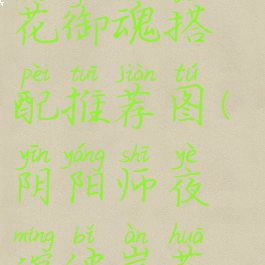 花御魂搭
pèi tuī jiàn tú
配推荐图(
yīn yáng shī yè
阴阳师夜
míng bǐ àn huā